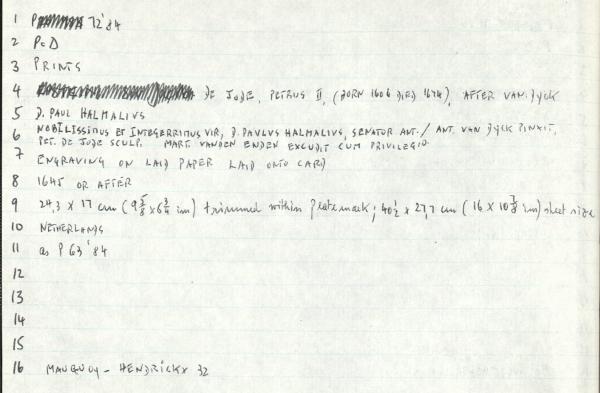 1 P 72'84
2 P&D
3 PRINTS
4 DE JODE, PETRUS II, (BORN 1606 DIED 1674), AFTER VAN DYCK
5 D. PAUL HALMALIUS
6 NOBILISSIMUS ET INTEGERRIMUS VIR, D. PAVLVS HALMALIUS, SENATOR ANT. / ANT. VAN DYCK PINXIT,
PET. DE JODE SCULP. MART. VANDEN ENDEN EXCUDIT CUM PRIVILEGIO.
7 ENGRAVING ON LAID PAPER LAID ONTO CARD
8 1645 OR AFTER
9 24,3 x 17 cm (9 5/8 x 6 3/4 im) trimmed within platemark; 40 1/2 x 27,7 cm (16 x 10 7/8 im) sheet size
10 NETHERLANDS
11 as P 63'84
12
13
14
15
16 MAUQUOY-HENDRICKX 32